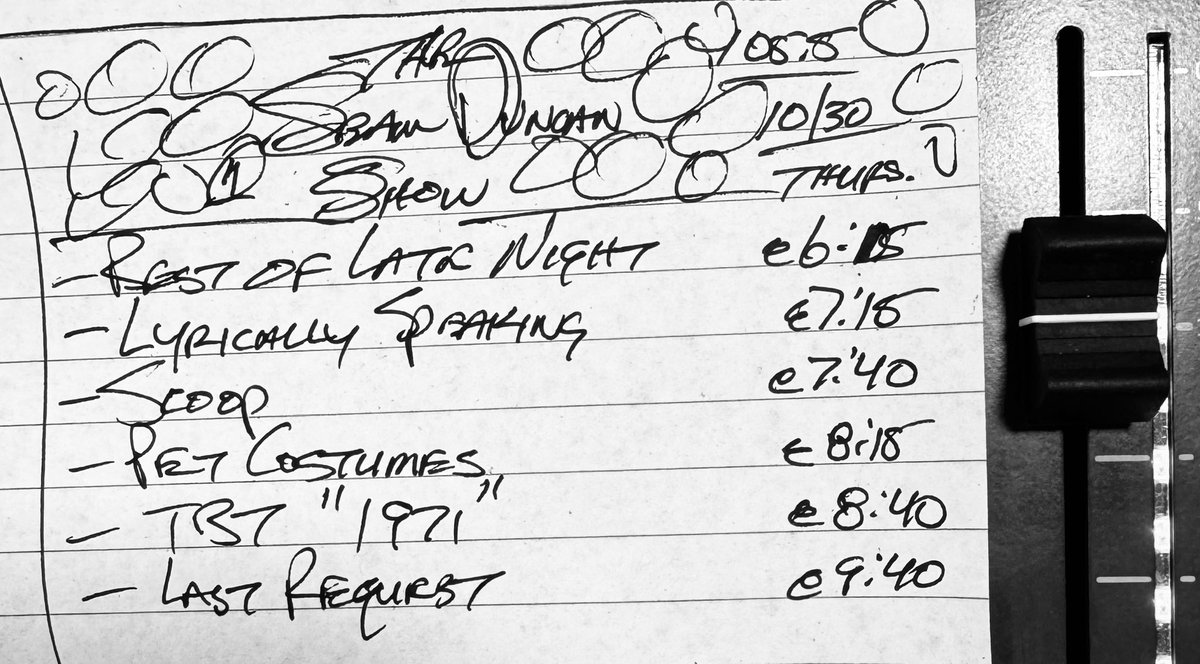 THE 105.5
SEAN DUNCAN 10/30
SHOW THURS.
- BEST OF LATE NIGHT @6:15
- LYRICALLY SPEAKING @7:15
- SCOOP @7:40
- PET COSTUMES @8:15
- TBT "1971" @8:40
- LAST REQUEST @9:40